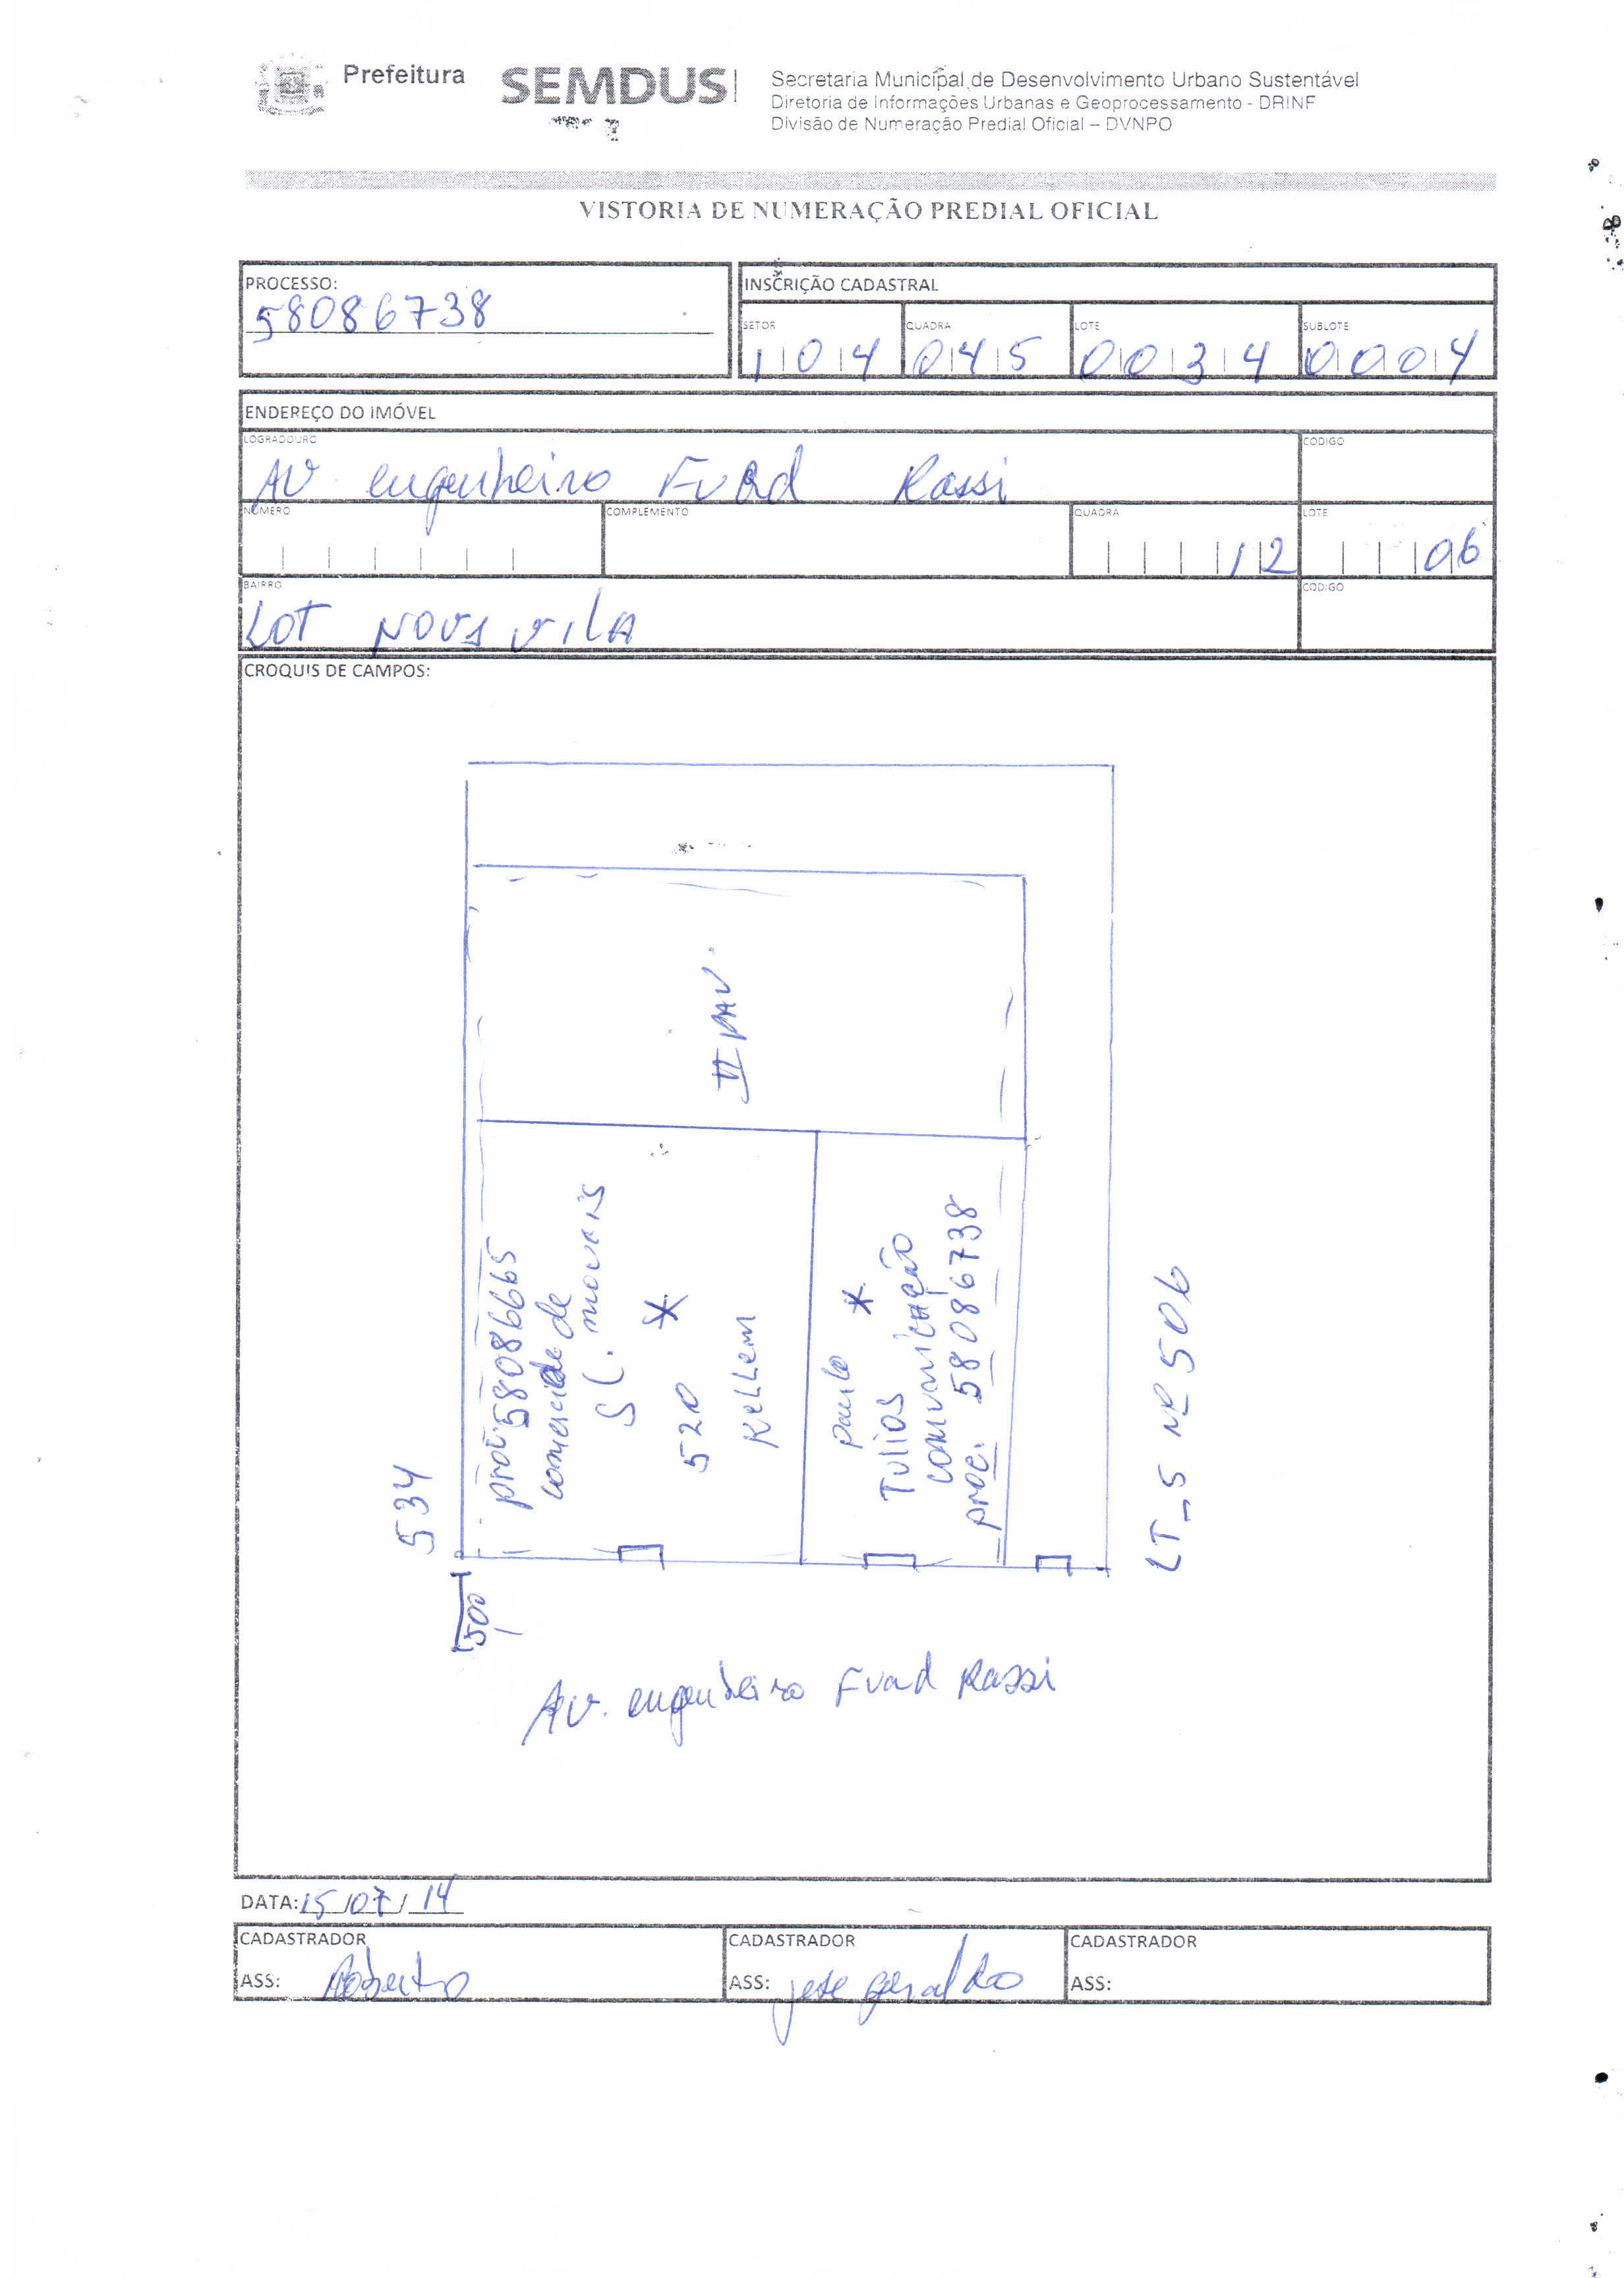 Prefeitura SEMDUS
Secretaria Municipal de Desenvolvimento Urbano Sustentável
Diretoria de Informações Urbanas e Geoprocessamento - DRINF
Divisão de Numeração Predial Oficial – DVNPO
VISTORIA DE NUMERAÇÃO PREDIAL OFICIAL
PROCESSO:
58086738
INSCRIÇÃO CADASTRAL
SETOR QUADRA LOTE SUBLOTE
104 045 0034 0004
ENDEREÇO DO IMÓVEL
LOGRADOURO CODIGO
AV. engenheiro Fuad Rassi
NÚMERO COMPLEMENTO QUADRA LOTE
12 06
BAIRRO CODIGO
LOT NOVA VILA
CROQUIS DE CAMPOS:
II PAV.
proc. 58086665
de
movais
520 *
Kellem
paulo *
Tulios
comunicação
proc. 58086738
534
LT_5 Nº 506
500
AV. engenheiro Fuad Rassi
DATA: 15/07/14
CADASTRADOR CADASTRADOR CADASTRADOR
ASS: Roberto ASS: jose geraldo ASS: